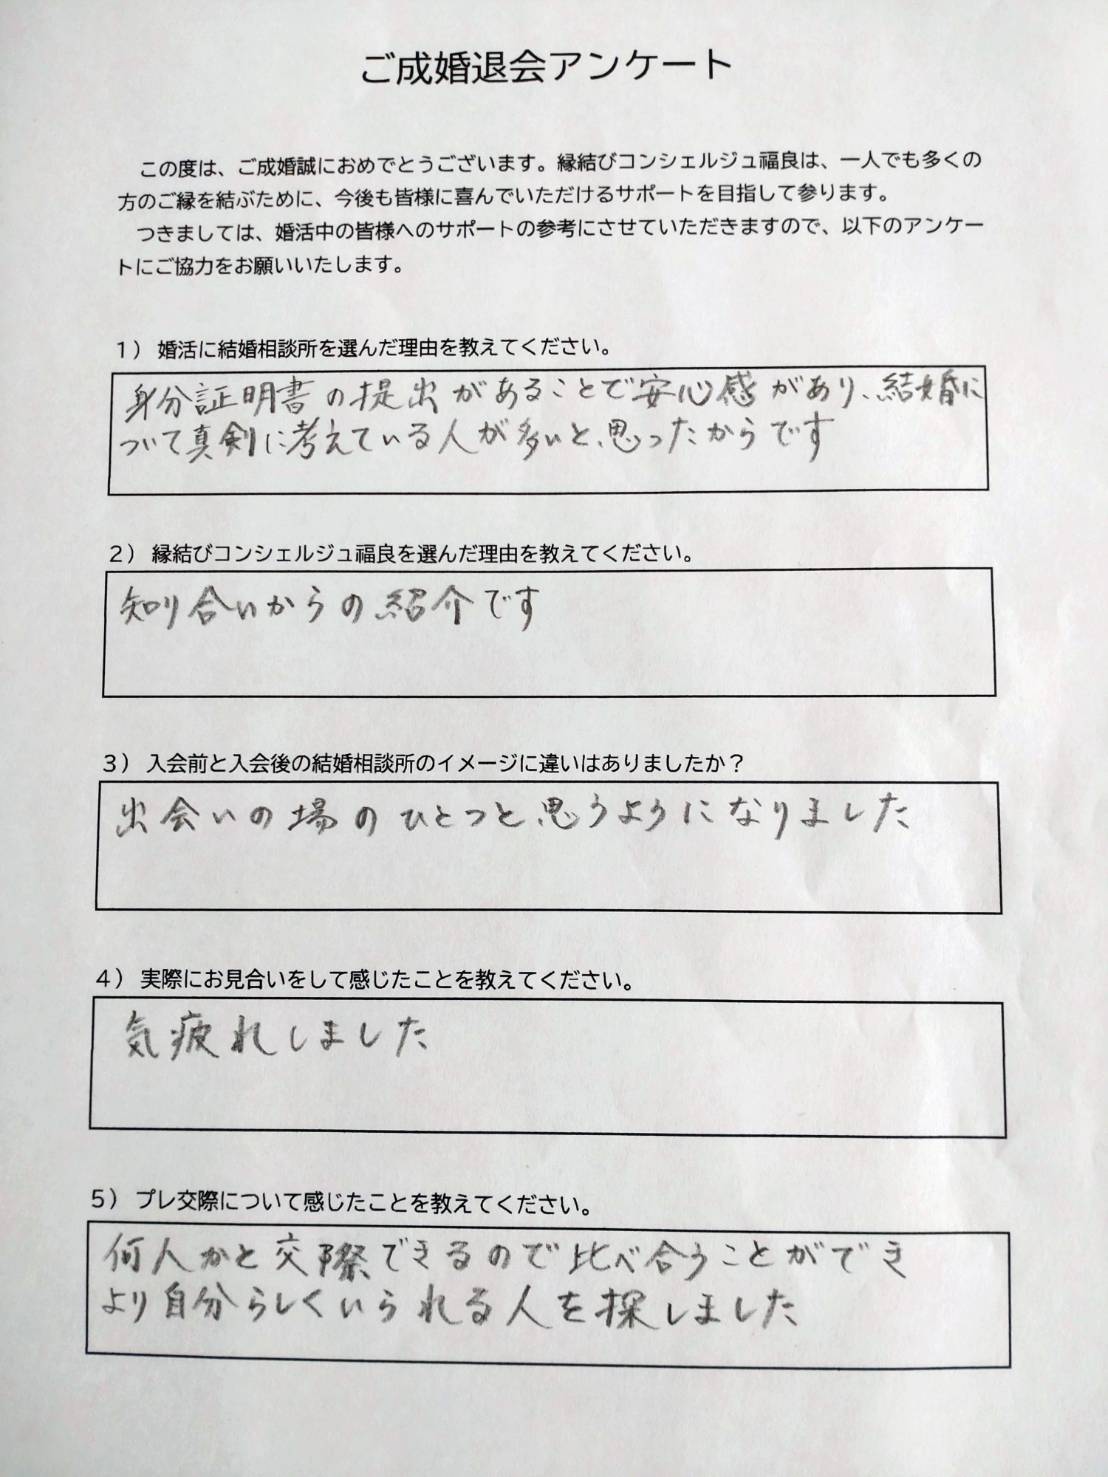 ご成婚退会アンケート
この度は、ご成婚誠におめでとうございます。縁結びコンシェルジュ福良は、一人でも多くの
方のご縁を結ぶために、今後も皆様に喜んでいただけるサポートを目指して参ります。
つきましては、婚活中の皆様へのサポートの参考にさせていただきますので、以下のアンケー
トにご協力をお願いいたします。
１） 婚活に結婚相談所を選んだ理由を教えてください。
身分証明書の提出があることで安心感があり、結婚に
ついて真剣に考えている人が多いと思ったからです
２） 縁結びコンシェルジュ福良を選んだ理由を教えてください。
知り合いからの紹介です
３） 入会前と入会後の結婚相談所のイメージに違いはありましたか？
出会いの場のひとつと思うようになりました
４） 実際にお見合いをして感じたことを教えてください。
気疲れしました
５） プレ交際について感じたことを教えてください。
何人かと交際できるので比べ合うことができ
より自分らしくいられる人を探しました